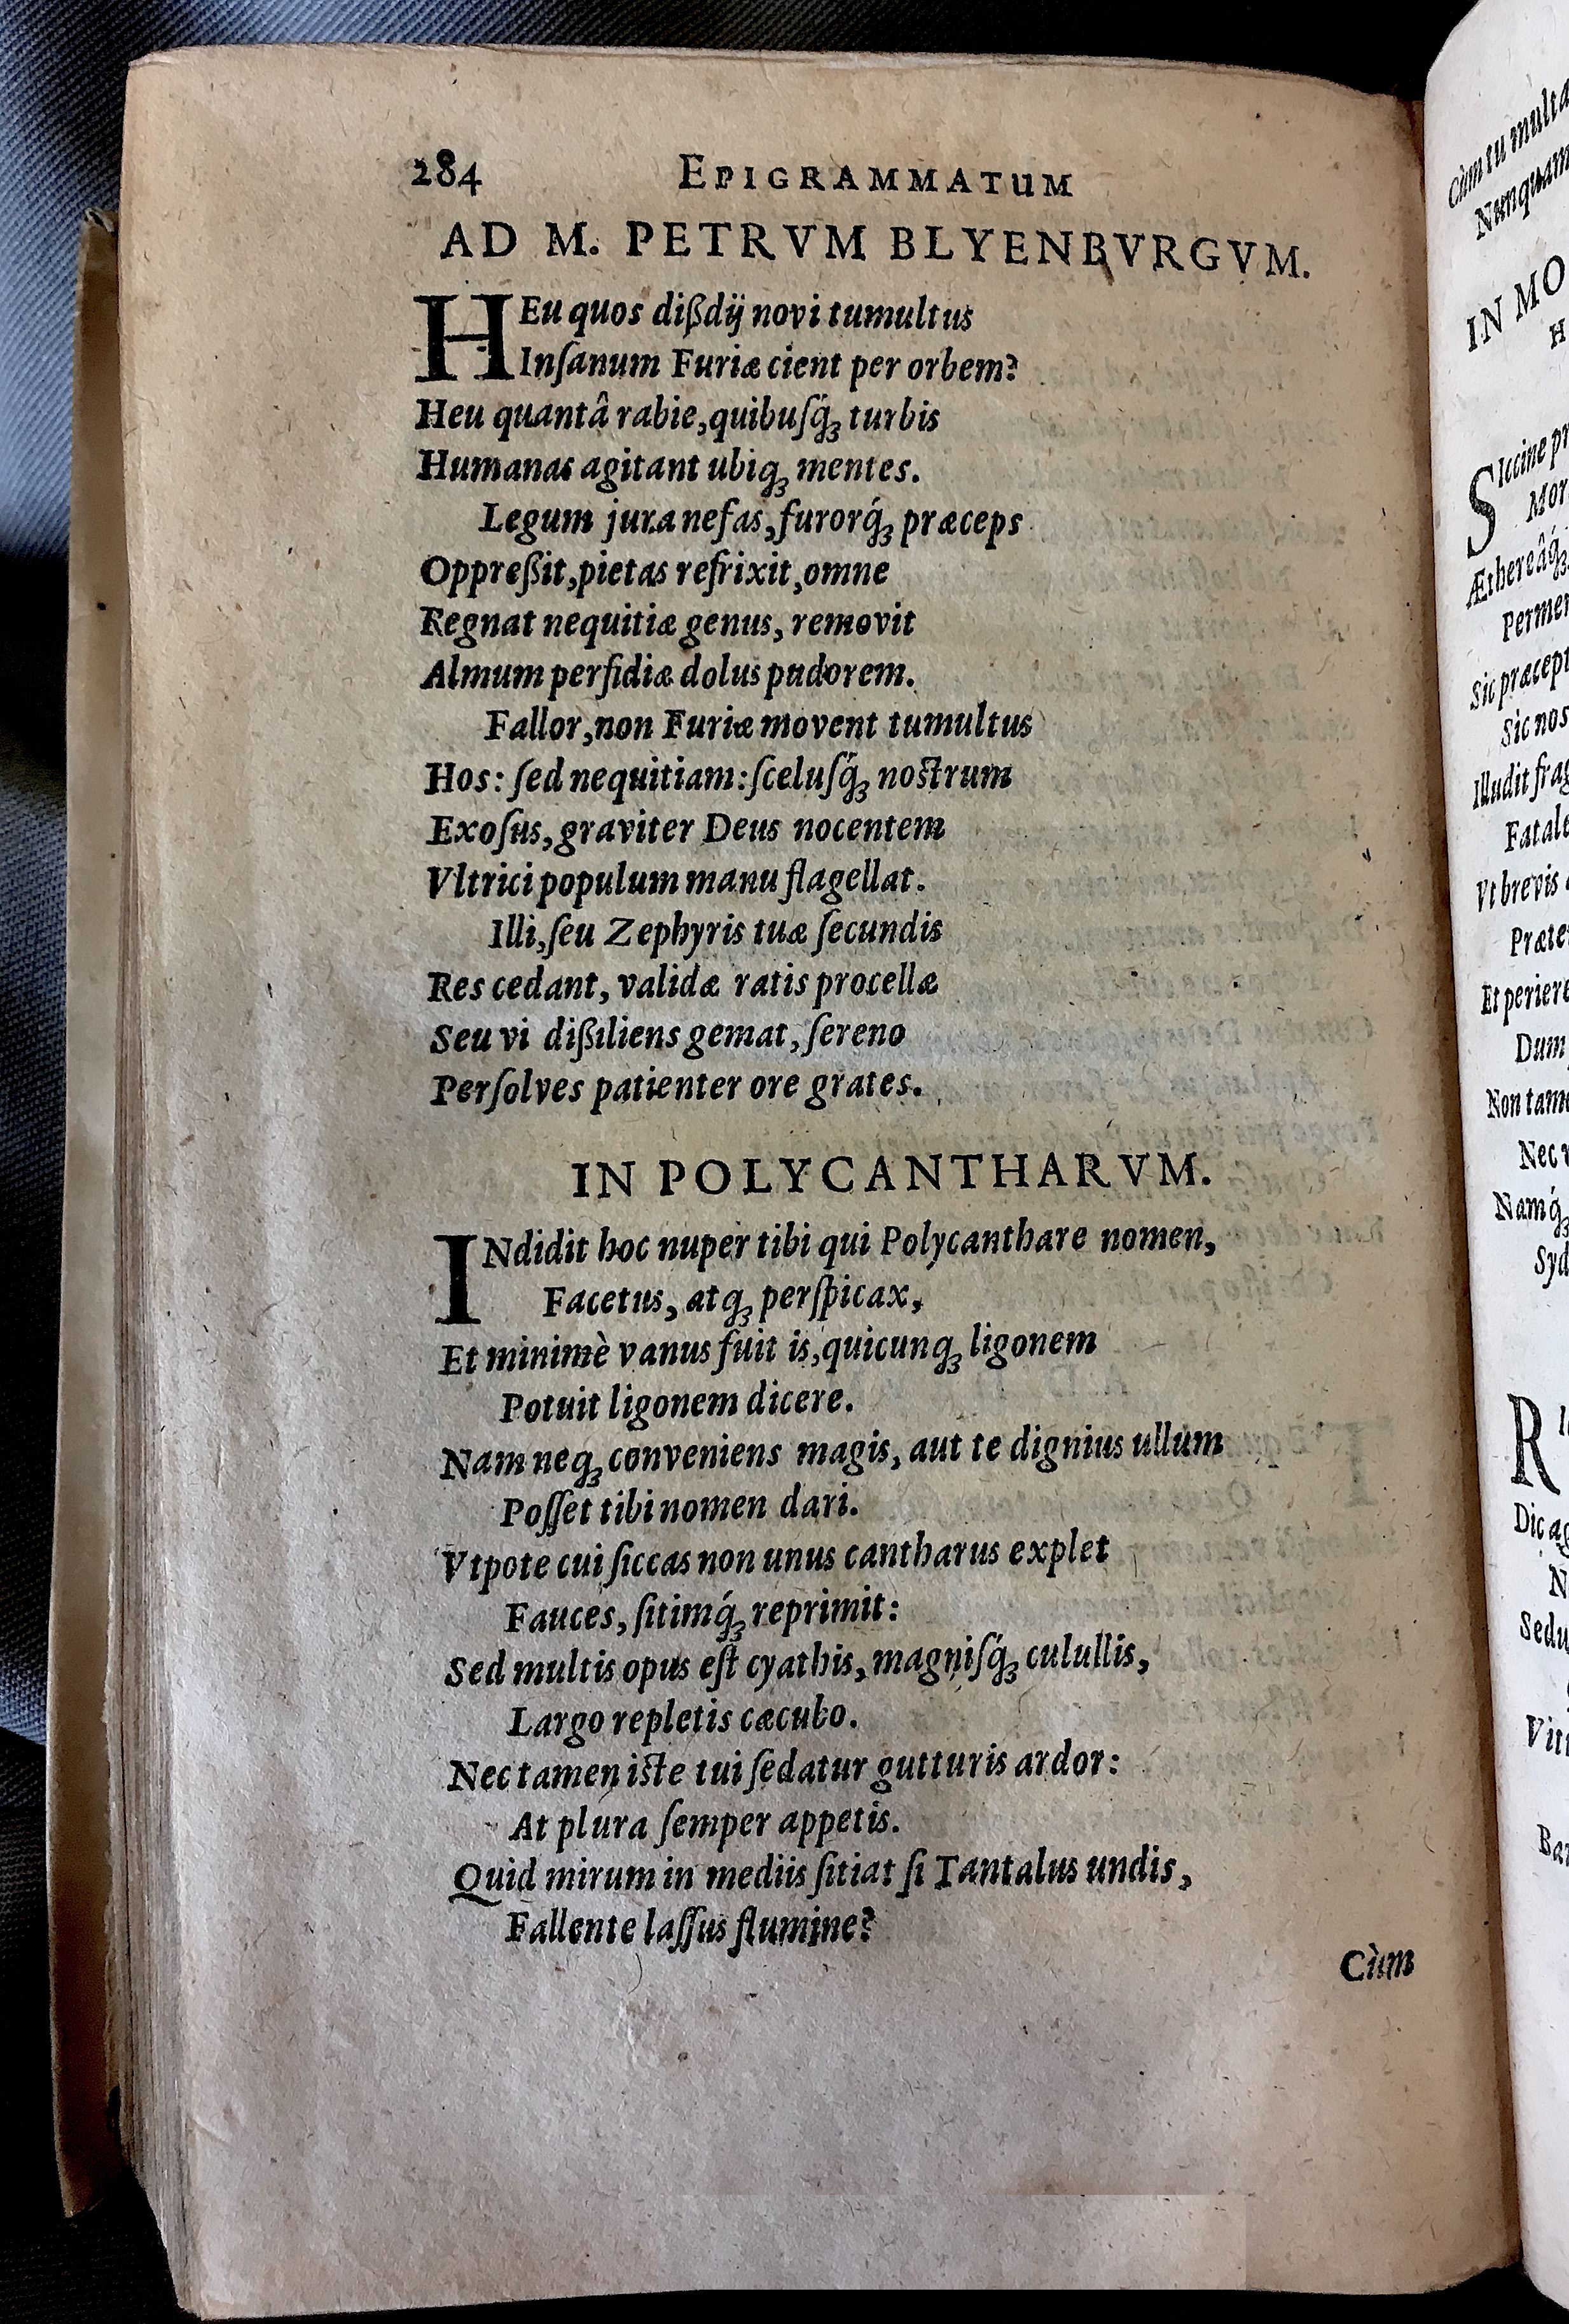 284 EPIGRAMMATUM
AD M. PETRVM BLYENBVRGVM.
HEu quos dißdij novi tumultus
Inſanum Furiæ cient per orbem?
Heu quantâ rabie, quibuſq́ꝫ turbis
Humanas agitant ubiqꝫ mentes.
Legum jura nefas, furorq́ꝫ præceps
Oppreßit, pietas refrixit, omne
Regnat nequitiæ genus, removit
Almum perfidiæ dolus pudorem.
Fallor, non Furiæ movent tumultus
Hos: ſed nequitiam: ſceluſq́ꝫ nostrum
Exoſus, graviter Deus nocentem
Vltrici populum manu flagellat.
Illi, ſeu Zephyris tuæ ſecundis
Res cedant, validæ ratis procellæ
Seu vi dißiliens gemat, ſereno
Perſolves patienter ore grates.
IN POLYCANTHARVM.
INdidit hoc nuper tibi qui Polycanthare nomen,
Facetus, atqꝫ perſpicax,
Et minimè vanus fuit is, quicunqꝫ ligonem
Potuit ligonem dicere.
Nam neqꝫ conveniens magis, aut te dignius ullum
Poſſet tibi nomen dari.
Vtpote cui ſiccas non unus cantharus explet
Fauces, ſitimq́ꝫ reprimit:
Sed multis opus eſt cyathis, magniſq́ꝫ culullis,
Largo repletis cæcubo.
Nec tamen iste tui ſedatur gutturis ardor:
At plura ſemper appetis.
Quid mirum in mediis ſitiat ſi Tantalus undis,
Fallente laſſus flumine?
Cùm
Cùm tu multa
Nunquam
IN MO
H
Siccine pr
Mor
Æthereâq́ꝫ
Permen
Sic præcept
Sic nos
Illudit frag
Fatale
Vt brevis
Præte
Et periere
Dum
Non tam
Nec v
Namq́ꝫ
Syd
R
Dic ag
N
Sedu
Viti
Bar